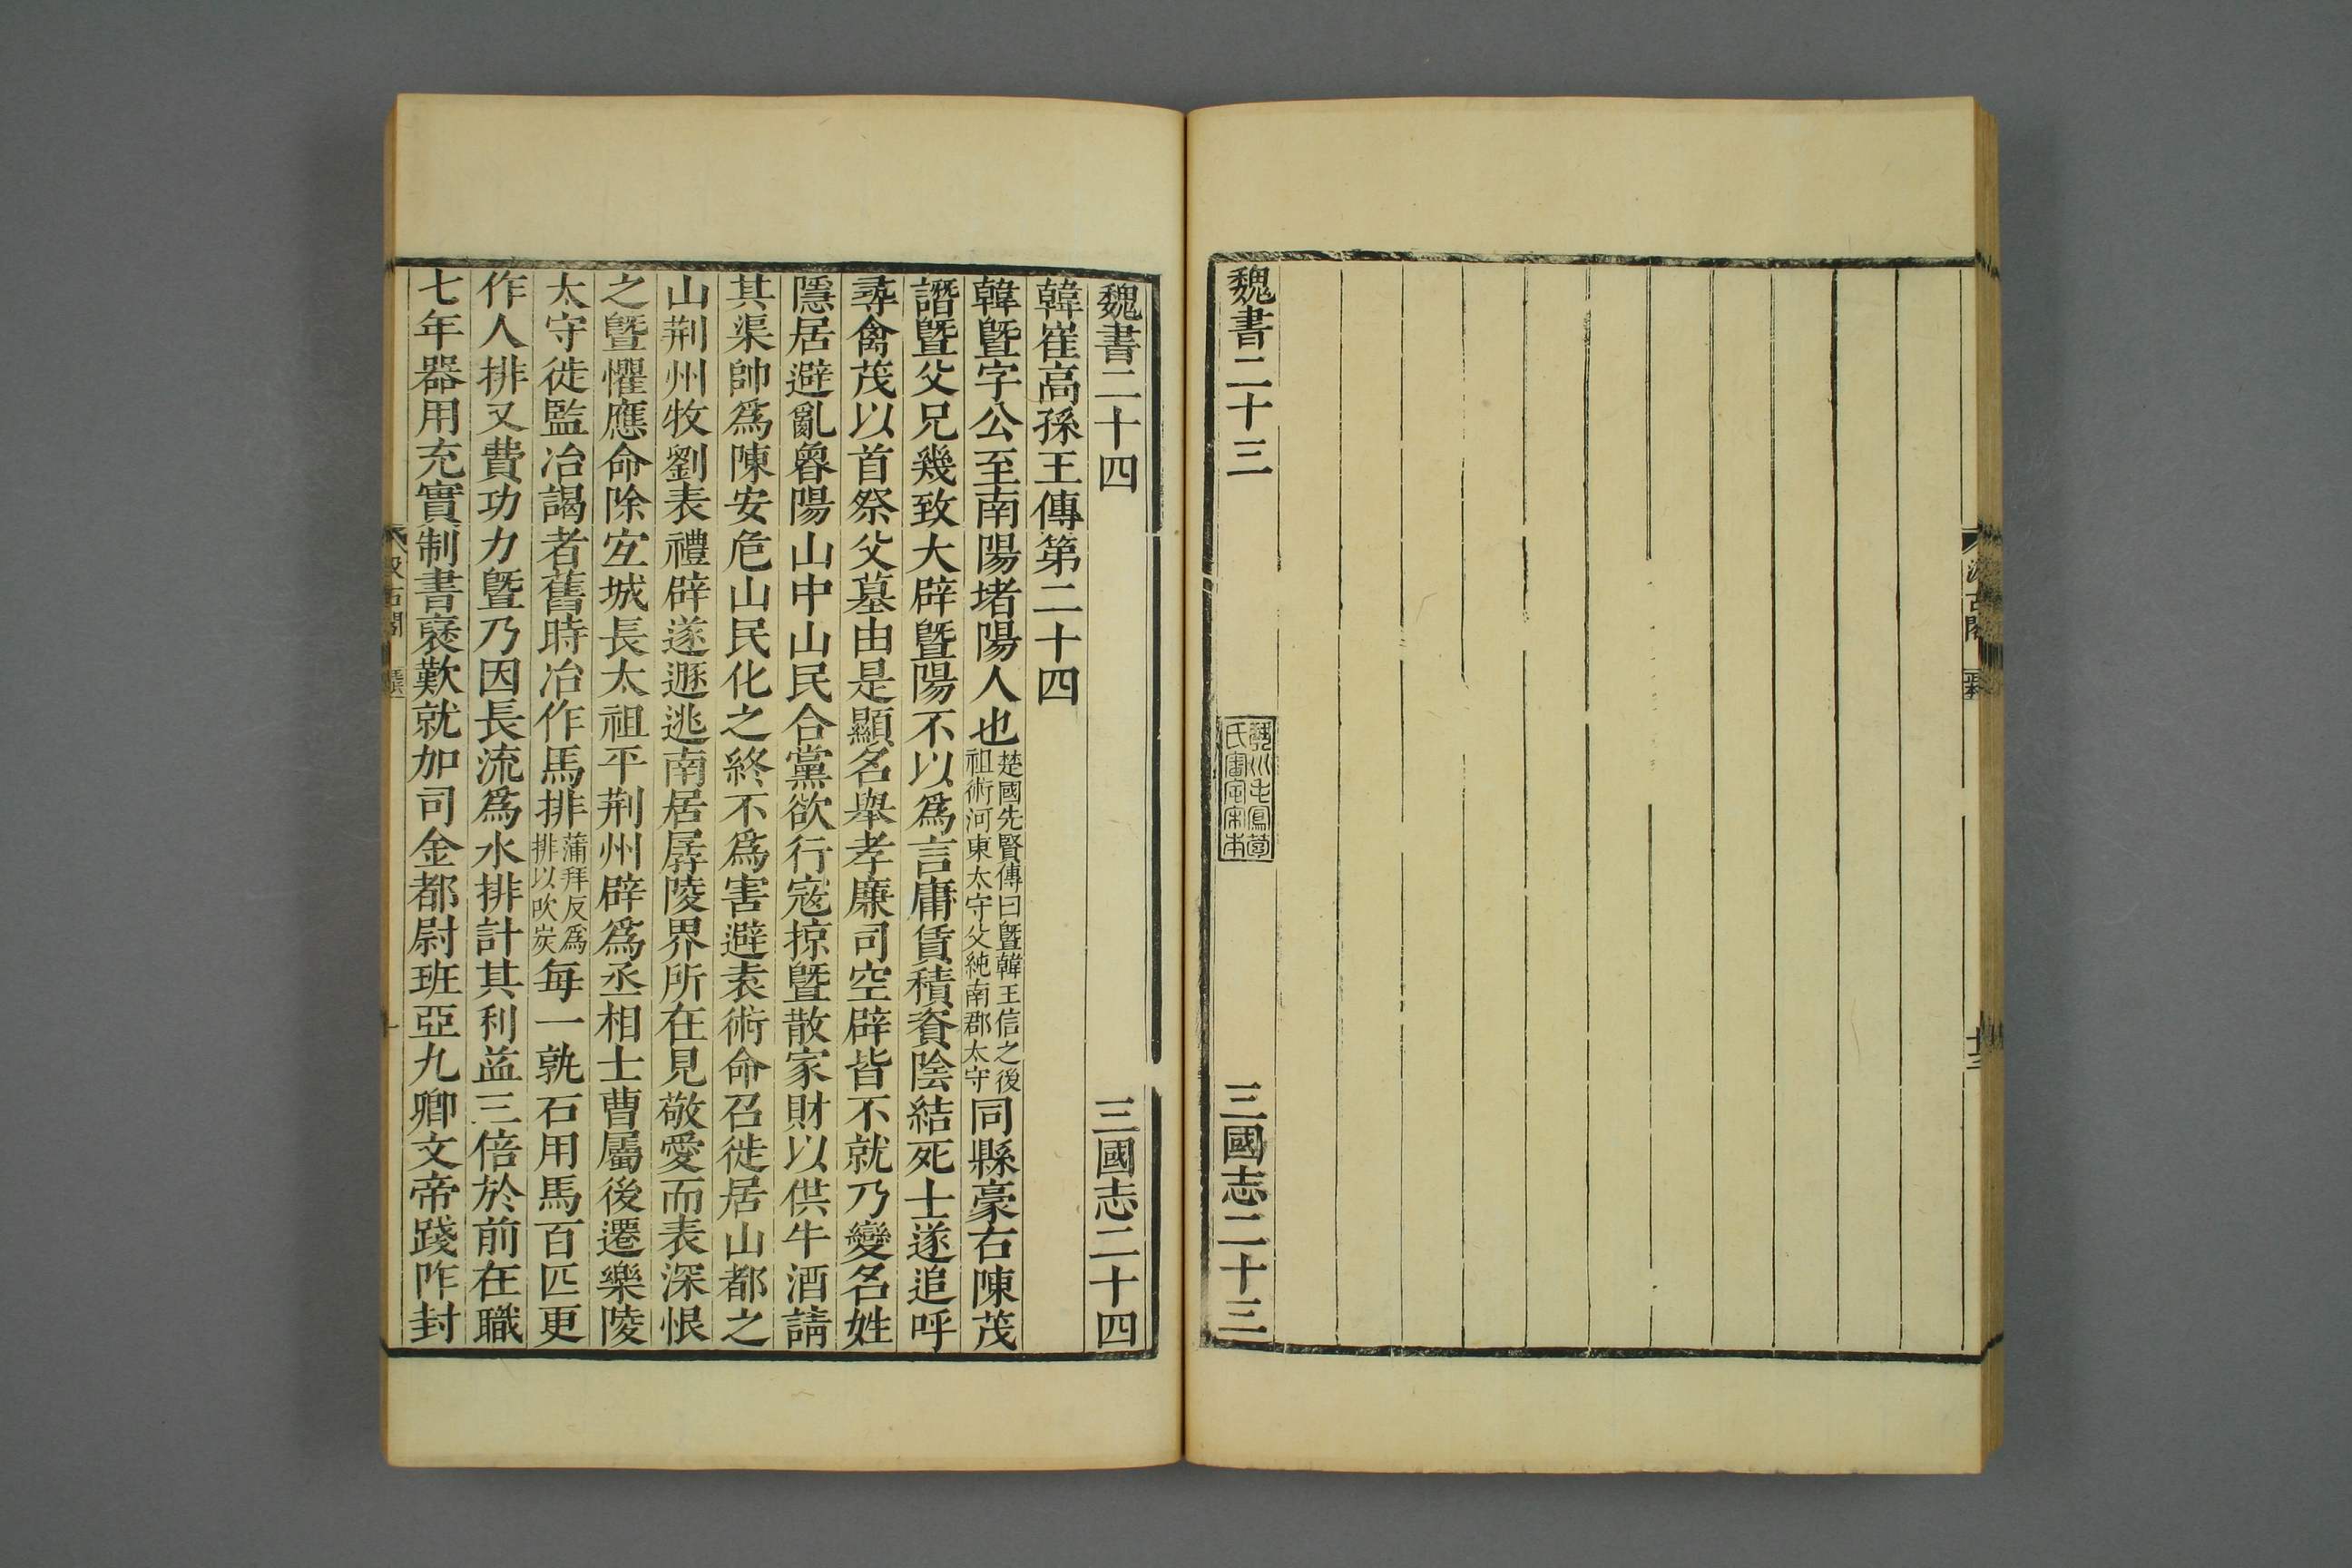 魏書二十三
三國志二十三
魏書二十四
三國志二十四
韓崔高孫王傳第二十四
韓曁字公至南陽堵陽人也
楚國先賢傳曰曁韓王信之後
祖術河東太守父純南郡太守
同縣豪右陳茂
譖曁父兄幾致大辟曁陽不以爲言庸賃積資陰結死士遂追呼
尋禽茂以首祭父墓由是顯名舉孝廉司空辟皆不就乃變名姓
隱居避亂魯陽山中山民合黨欲行寇掠曁散家財以供牛酒請
其渠帥爲陳安危山民化之終不爲害避袁術命召徙居山都之
山荆州牧劉表禮辟遂遯逃南居孱陵界所在見敬愛而表深恨
之曁懼應命除宐城長太祖平荆州辟爲丞相士曹屬後遷樂陵
太守徙監冶謁者舊時冶作馬排
蒲拜反爲
排以吹炭
每一孰石用馬百匹更
作人排又費功力曁乃因長流爲水排計其利益三倍於前在職
七年器用充實制書褒歎就加司金都尉班亞九卿文帝踐阼封